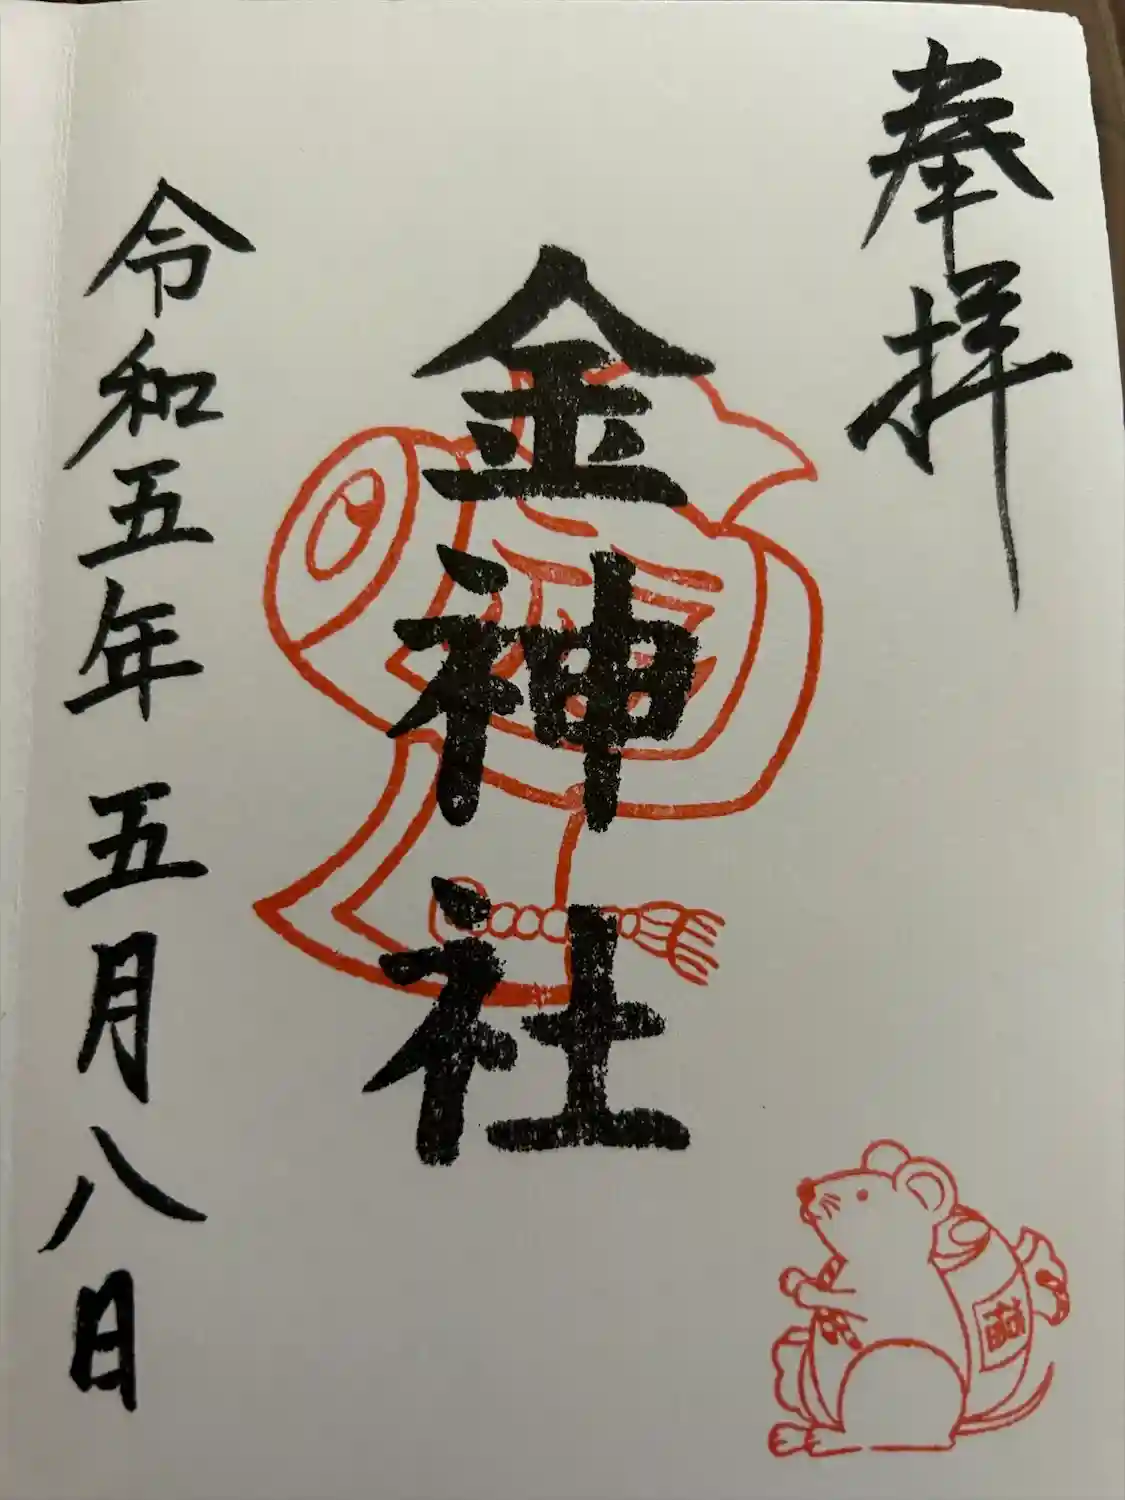 奉拝
金神社
令和五年五月八日
福